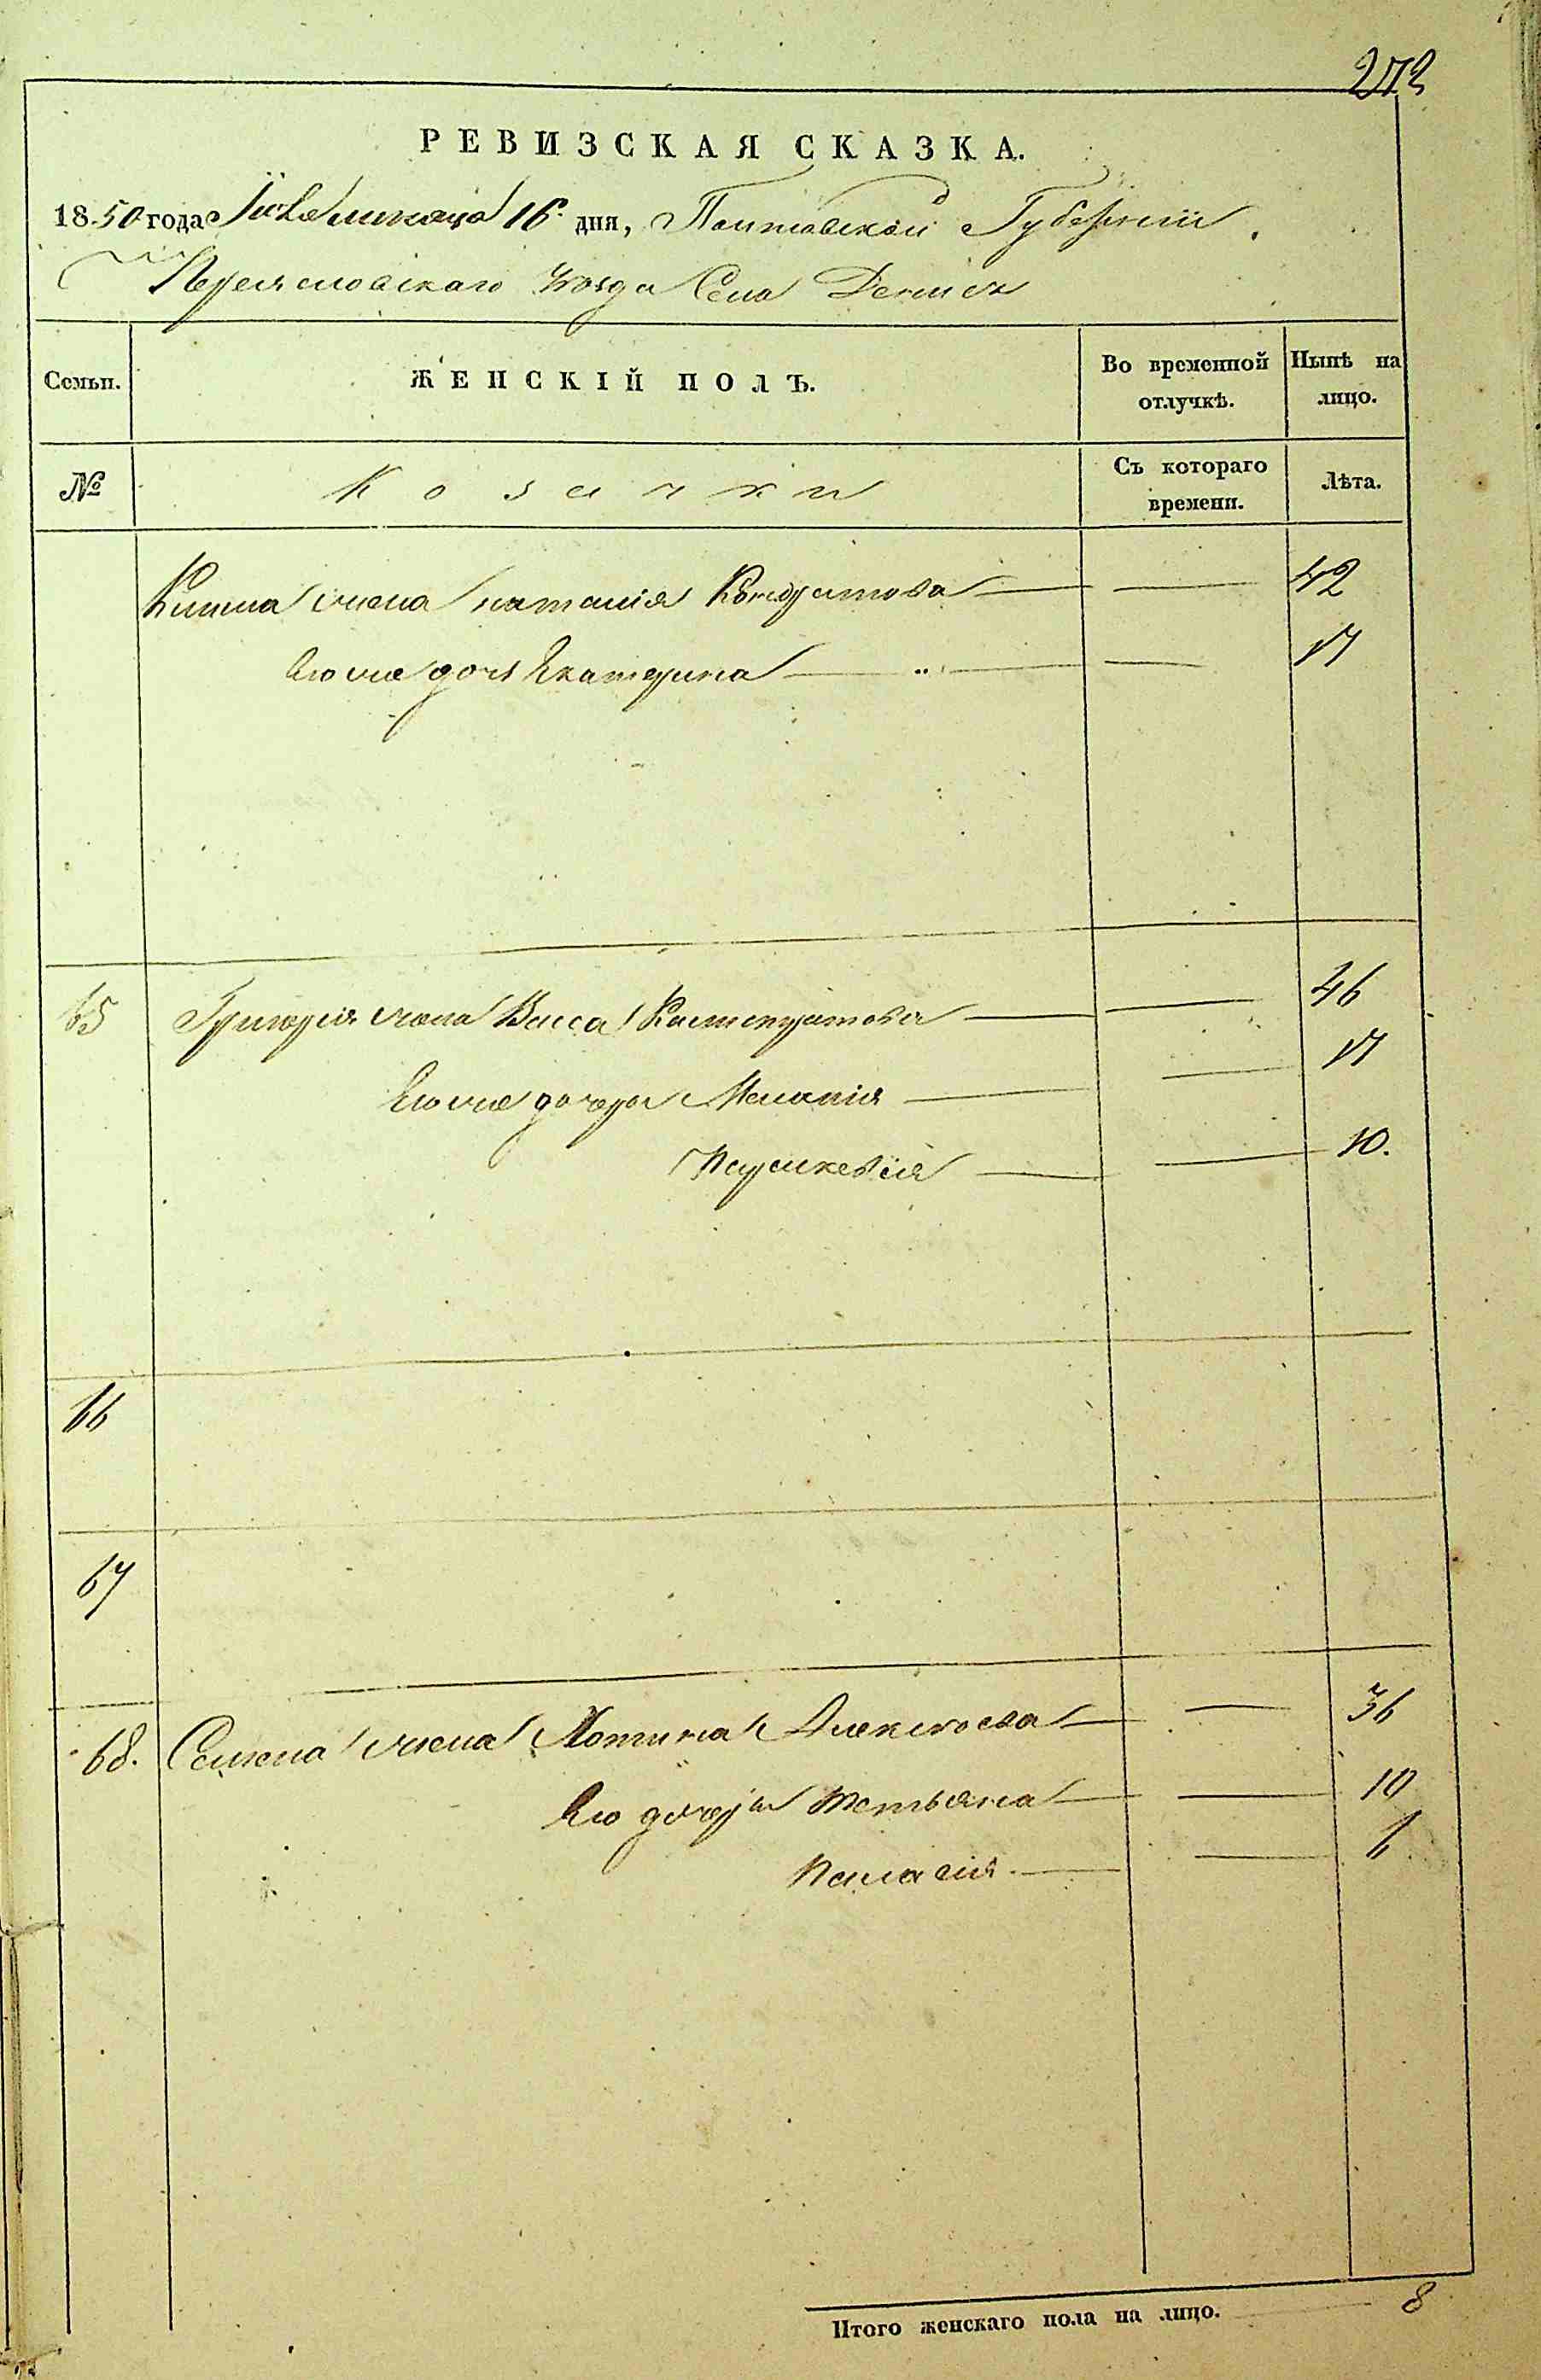 272
РЕВИЗСКАЯ СКАЗКА.
1850 года Ноября месяца 16 дня, Полтавской Губернии
Переяславскаго Уезда Села Демьсян
Семьи. ЖЕНСКІЙ ПОЛЪ. Во временной отлучкѣ. Нынѣ на лицо.
№ Козачки Съ котораго времени. Лѣта.
жена Наталія Кондратова 42
Его же дочь Екатерина 17
65 Григорія жена Васса Кондратова 46
Его же дочери Меланія 17
Параскевія 10.
66
67
68. Семена жена Мотрина Алексеева 36
Его дочери Татьяна 10
Пелагія 6
Итого женскаго пола на лицо. 8